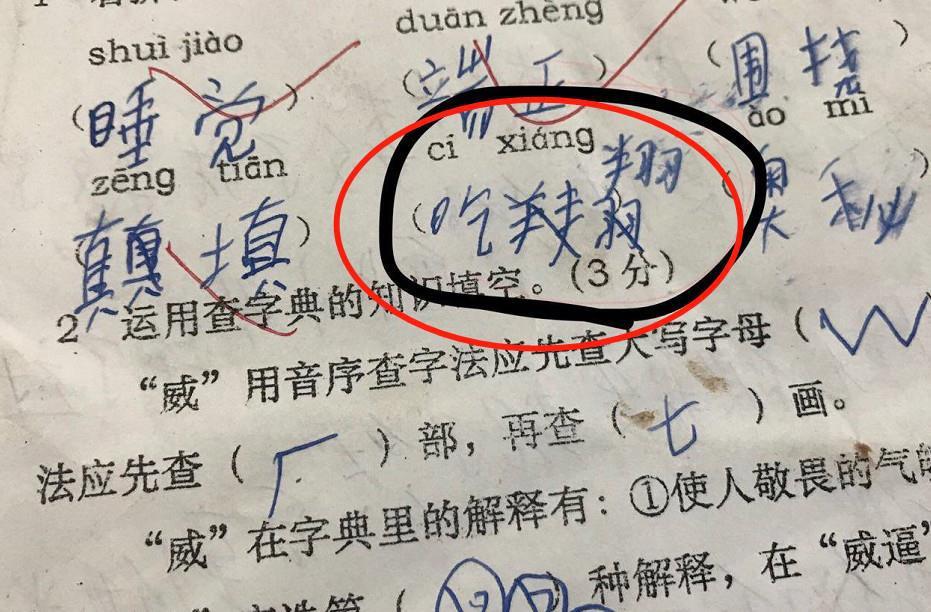 shuì jiào duān zhèng
(睡 觉) (端 正) (围 
zēng tiān cì xiáng ào mì
(填) (吃 翔 翔) (奥 秘)
2 运用查字典的知识填空。(3分)
“威”用音序查字法应先查大写字母( W
法应先查(厂)部,再查(七)画。
“威”在字典里的解释有:①使人敬畏的气
种解释,在“威逼”